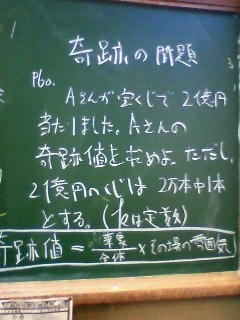 奇跡の問題
Pbo.
Aさんが宝くじで2億円
当たりました。Aさんの
奇跡値を求めよ。ただし、
2億円のくじは2万本中1本
とする。(kは定数)
奇跡値 = 事象/全体 × その場の雰囲気